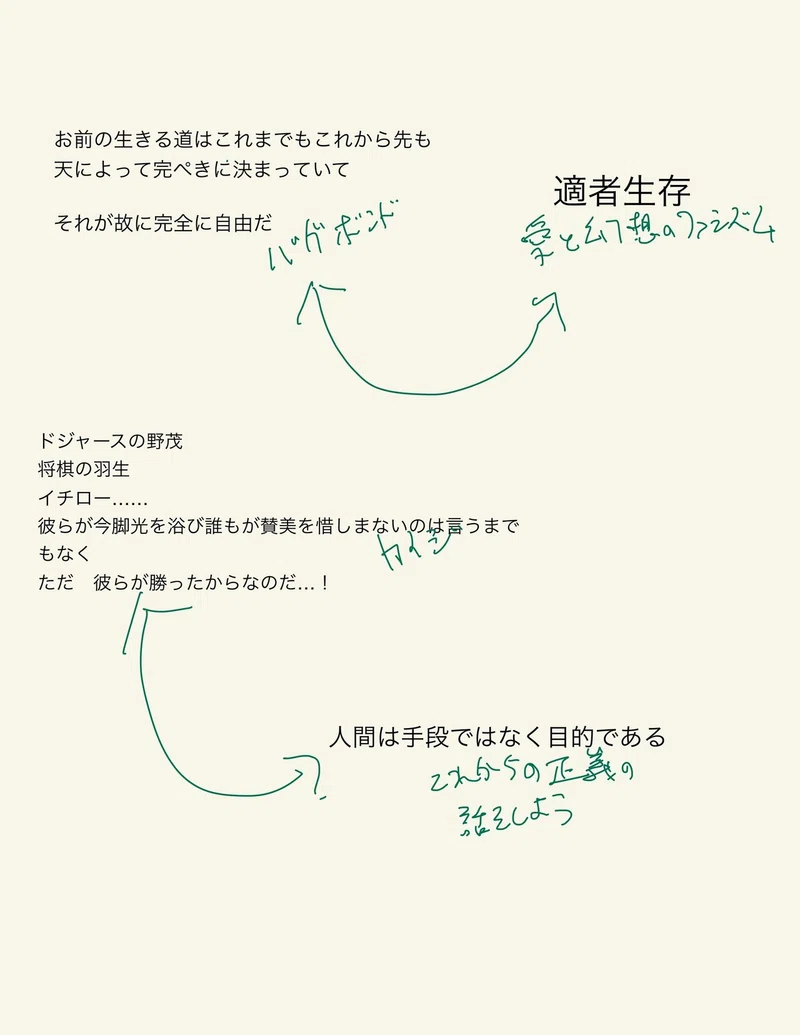 お前の生きる道はこれまでもこれから先も
天によって完ぺきに決まっていて
それが故に完全に自由だ
バガボンド
適者生存
愛と幻想のファシズム
ドジャースの野茂
将棋の羽生
イチロー……
彼らが今脚光を浴び誰もが賛美を惜しまないのは言うまで
もなく
ただ　彼らが勝ったからなのだ…！
カイジ
人間は手段ではなく目的である
これからの正義の
話をしよう